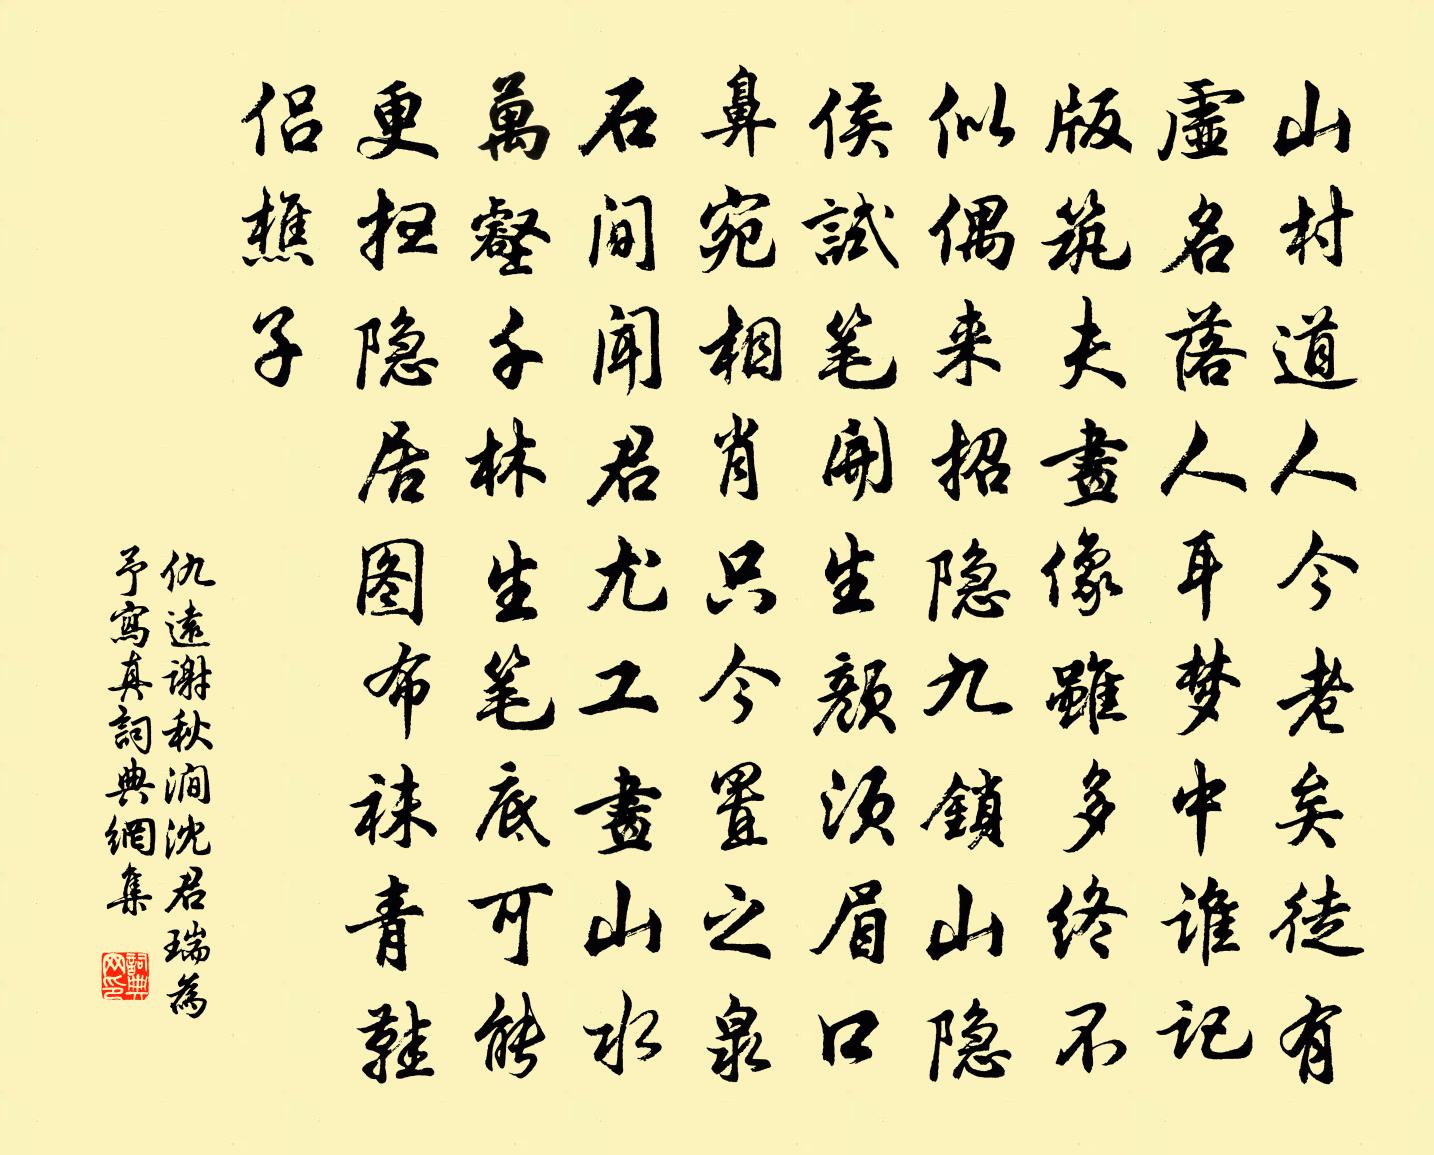 山村道人今老矣徒有
虛名落人耳梦中谁记
版筑夫畫像雖多终不
似偶来招隐九鎖山隐
侯試笔開生顏须眉口
鼻宛相肖只今置之泉
石间闻君尤工畫山水
萬壑千林生笔底可能
更扭隐居图布袜青鞋
侣樵子
仇遠谢秋澗沈君瑞為
予寫真詞典網集
詞典网印